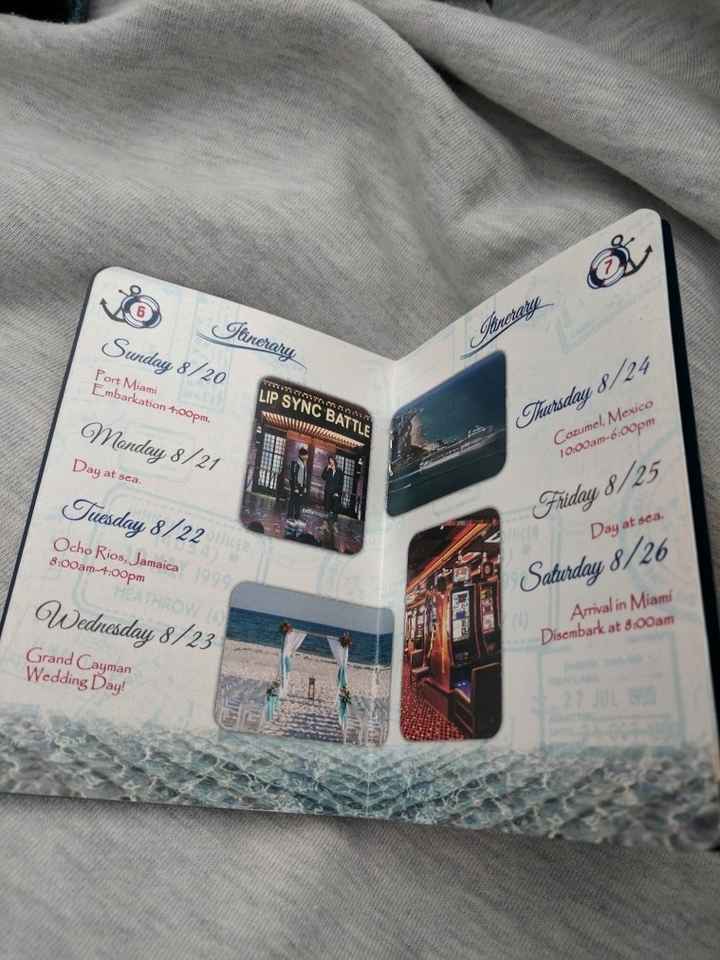 6
Itinerary
Sunday 8/20
Port Miami
Embarkation 4:00pm.
Monday 8/21
Day at sea.
Tuesday 8/22
Ocho Rios, Jamaica
8:00am-4:00pm
Wednesday 8/23
Grand Cayman
Wedding Day!
LIP SYNC BATTLE
1999
HEATHROW
7
Itinerary
Thursday 8/24
Cozumel, Mexico
10:00am-6:00pm
Friday 8/25
Day at sea.
Saturday 8/26
Arrival in Miami
Disembark at 8:00am
27 JUL